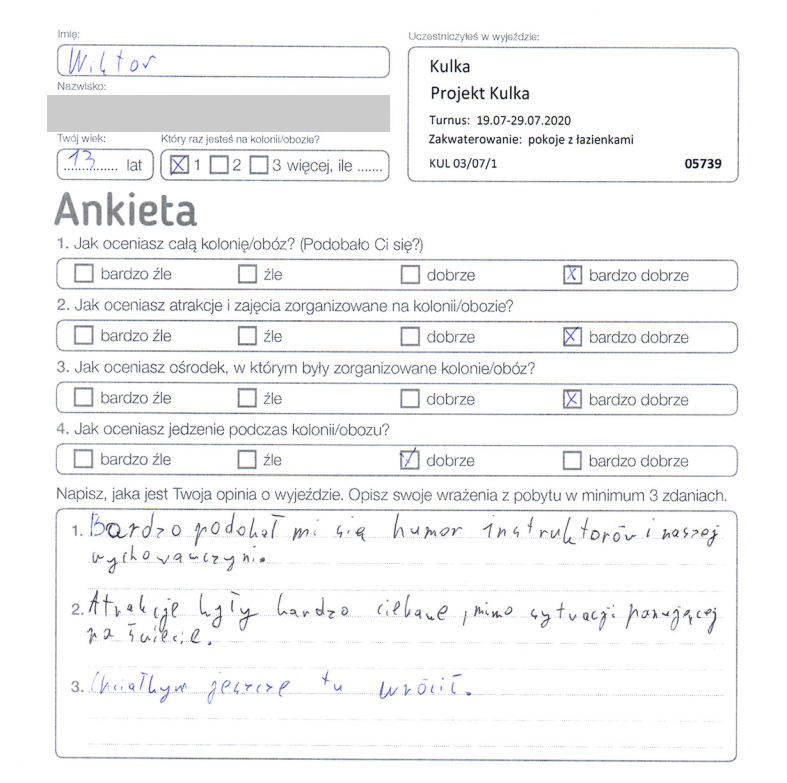 Imię:
Wiktor
Nazwisko:
Twój wiek:
13 lat
Który raz jesteś na kolonii/obozie?
1 2 3 więcej, ile .......
Uczestniczyłeś w wyjeździe:
Kulka
Projekt Kulka
Turnus: 19.07-29.07.2020
Zakwaterowanie: pokoje z łazienkami
KUL 03/07/1 05739
Ankieta
1. Jak oceniasz całą kolonię/obóz? (Podobało Ci się?)
bardzo źle źle dobrze bardzo dobrze
2. Jak oceniasz atrakcje i zajęcia zorganizowane na kolonii/obozie?
bardzo źle źle dobrze bardzo dobrze
3. Jak oceniasz ośrodek, w którym były zorganizowane kolonie/obóz?
bardzo źle źle dobrze bardzo dobrze
4. Jak oceniasz jedzenie podczas kolonii/obozu?
bardzo źle źle dobrze bardzo dobrze
Napisz, jaka jest Twoja opinia o wyjeździe. Opisz swoje wrażenia z pobytu w minimum 3 zdaniach.
1. Bardzo podobał mi się humor instruktorów i naszej
wychowawczyni.
2. Atrakcje były bardzo ciekawe, mimo sytuacji panującej
na świecie.
3. Chciałbym jeszcze tu wrócić.